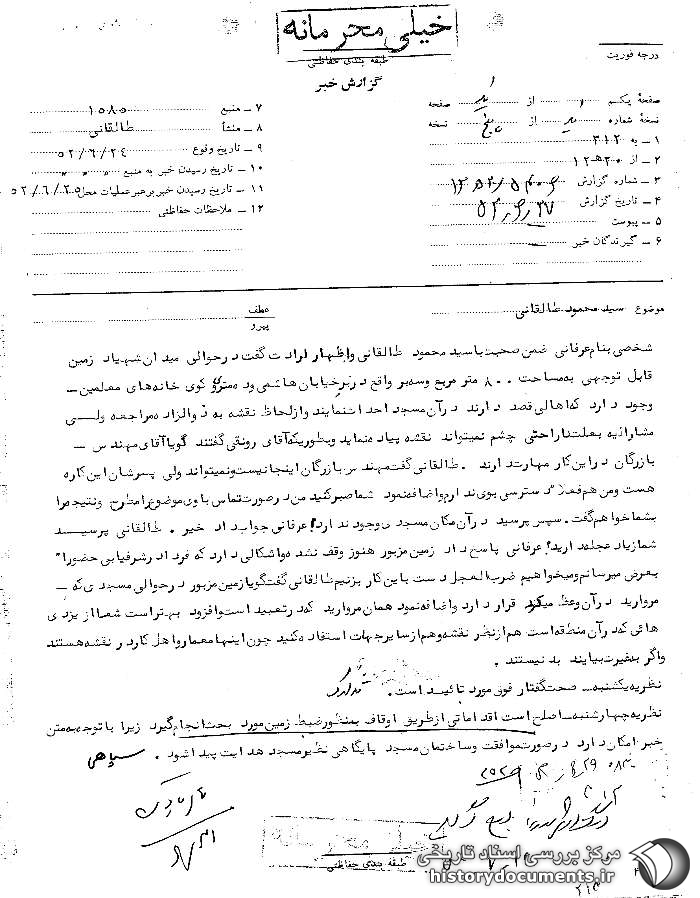 خیلی محرمانه
طبقه بندی حفاظتی
گزارش خبر
درجه فوریت
صفحه یکم از صفحه
نسخه شماره از پنج نسخه
۱ – به ۳۱۲
۲ – از ۱۲ ه ۲۰
۳ – شماره گزارش
۴ – تاریخ گزارش
۵ – پیوست
۶ – گیرندگان خبر
۷ – منبع ۱۵۸۵
۸ – منشأ طالقانی
۹ – تاریخ وقوع ۵۲/۶/۲۴
۱۰ – تاریخ رسیدن خبر به منبع
۱۱ – تاریخ رسیدن خبر برهبر عملیات محل ۵۲/۶/۲۵
۱۲ – ملاحظات حفاظتی
موضوع سید محمود طالقانی
عطف
پیرو
شخصی بنام عرفانی ضمن صحبت با سید محمود طالقانی و اظهار ارادت گفت در حوالی میدان شهیاد زمین
قابل توجهی به مساحت ۸۰۰ متر مربع وسه بر واقع در نبر خیابان هاشمی و ده متری کوی خانه های معلمین –
وجود دارد که اهالی قصد دارند در آن مسجد احداث نمایند و از لحاظ نقشه به ذوالزاده مراجعه ولی
مشارالیه بعلت ناراحتی چشم نمیتواند نقشه پیاده نماید و بطوریکه آقای رونقی گفتند گویا آقای مهندس –
بازرگان در این کار مهارت دارند . طالقانی گفت مهندس بازرگان اینجا نیست و نمیتواند ولی پسرشان این کاره
هست ومن هم فعلا" دسترسی بوی ندارم و اضافه نمود شما صبر کنید من در صورت تماس با وی موضوع را مطرح و نتیجه را
بشما خواهم گفت . سپس پرسید در آن مکان مسجدی وجود ندارد؟ عرفانی جواب داد خیر . طالقانی پرسید
شما زیاد عجله دارید؟ عرفانی پاسخ داد زمین مزبور هنوز وقف نشده و اشکالی دارد که فردا در شرفیابی حضورا"
بعرض میرسانم و میخواهیم ضرب العجل دست باین کار بزنیم طالقانی گفت گویا زمین مزبور در حوالی مسجدی که –
مروارید در آن وعظ میکند قرار دارد و اضافه نمود همان مروارید که در تبعید است و افزود بهتر است شما از یزدی
هائی که در آن منطقه است هم از نظر نقشه و هم از سایر جهات استفاده کنید چون اینها معمار و اهل کار در نقشه هستند
واگر به غیرت بیایند بد نیستند .
نظریه یکشنبه – صحت گفتار فوق مورد تائید است .
نظریه چهارشنبه – اصلح است اقداماتی از طریق اوقاف بمنظور ضبط زمین مورد بحث انجام گیرد زیرا با توجه به متن
خبر امکان دارد در صورت موافقت و ساختمان مسجد پایگاهی نظیر مسجد هدایت پیدا شود . سپاهی
خیلی محرمانه
طبقه بندی حفاظتی
مرکز بررسی اسناد تاریخی
historydocuments.ir